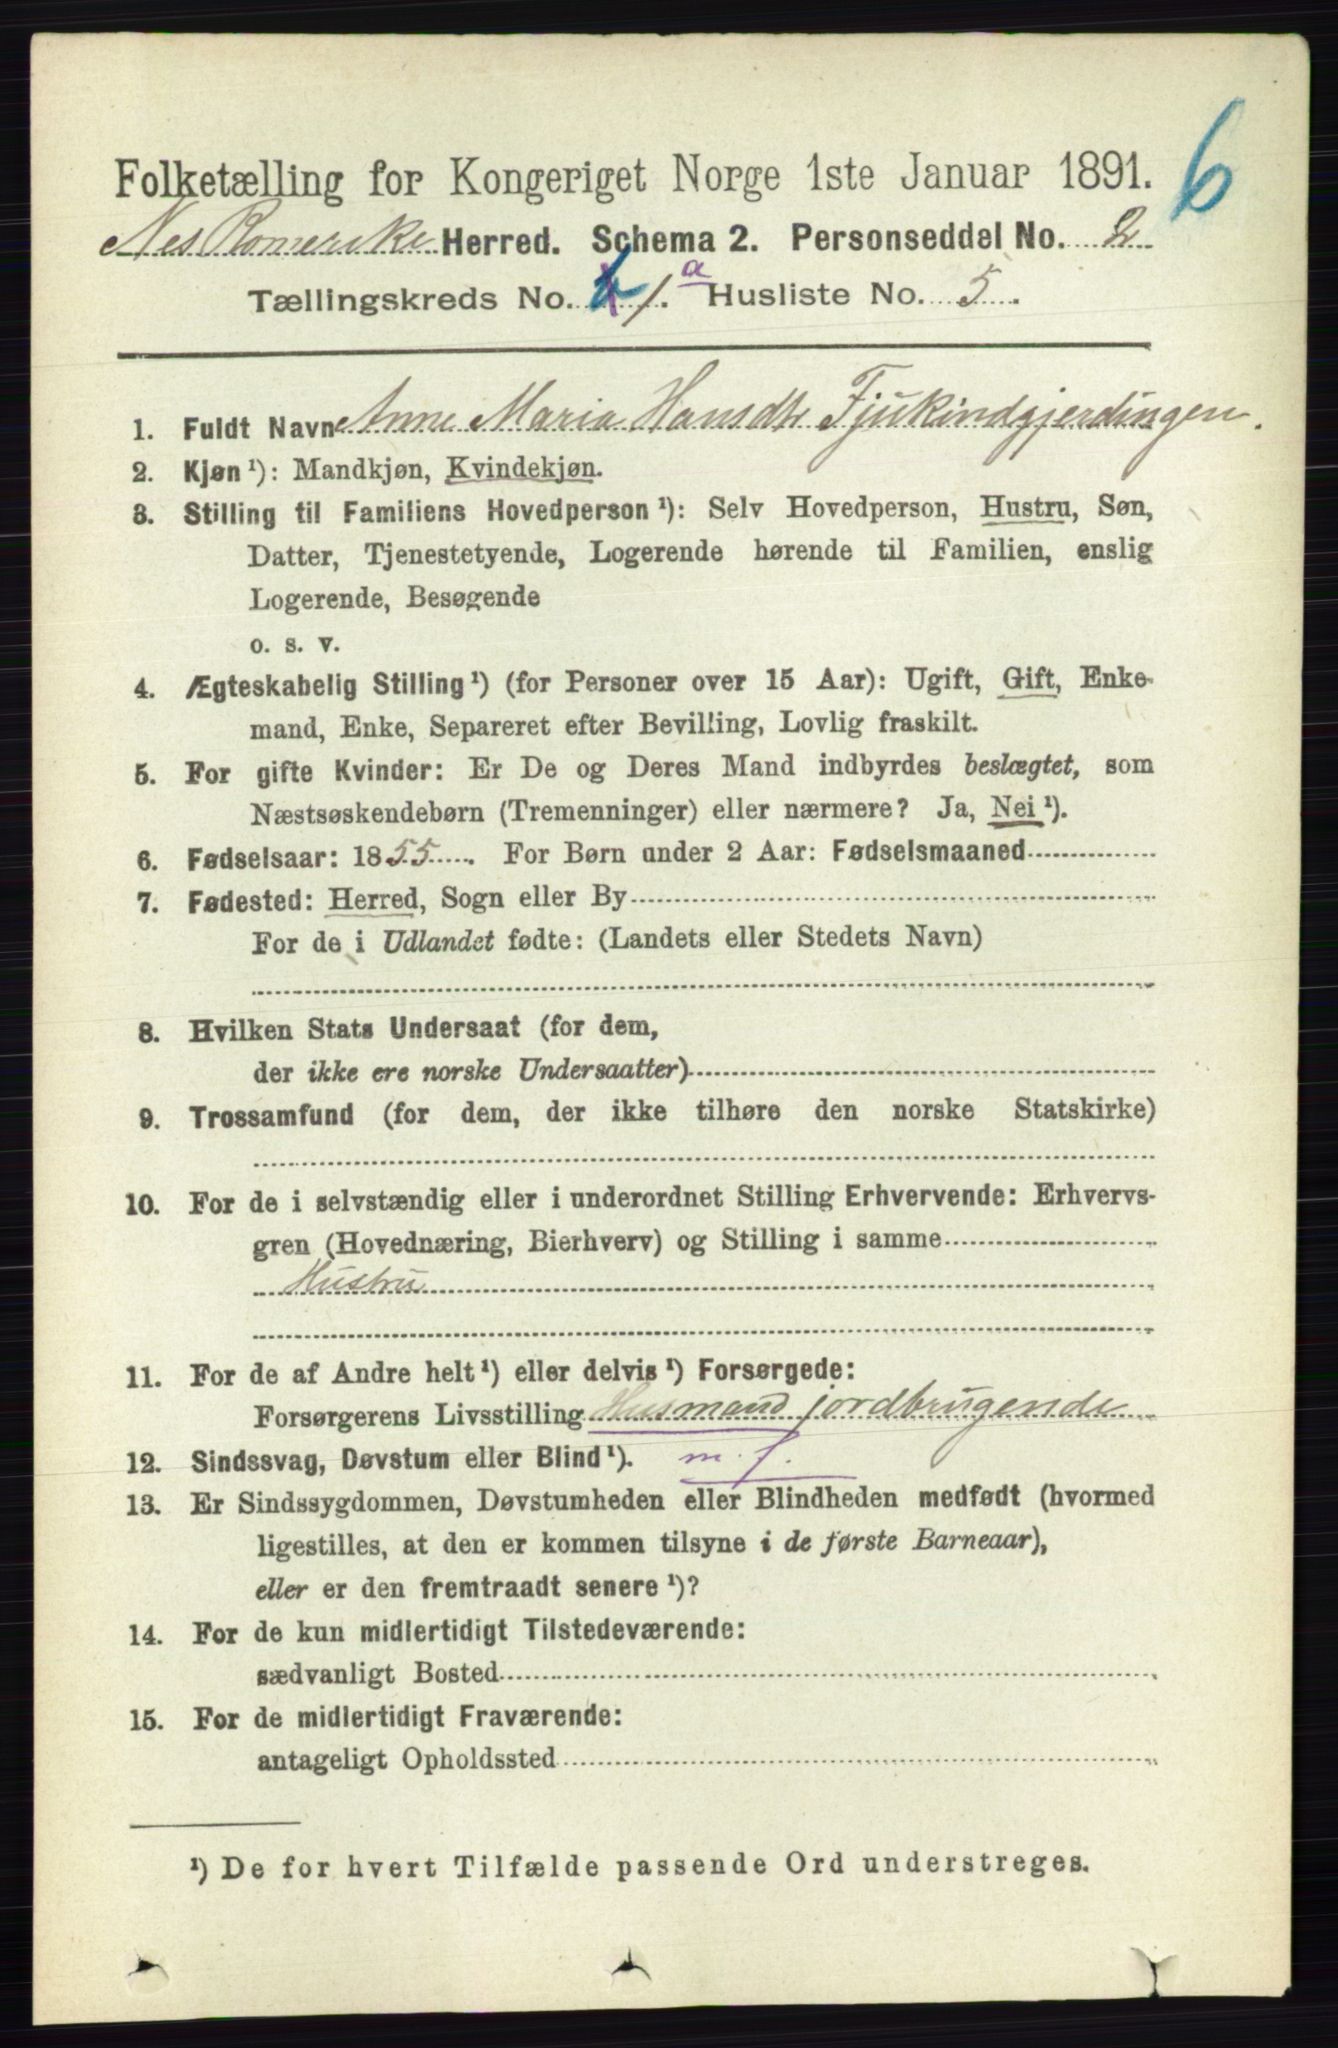 6
Folketælling for Kongeriget Norge 1ste Januar 1891.
Nes Romerike Herred. Schema 2. Personseddel No. 2
Tællingskreds No. 1. a Husliste No. 5.
1. Fuldt Navn Anne Maria Hansdtr Fjukindgjerdingen.
2. Kjøn ¹): Mandkjøn, Kvindekjøn.
3. Stilling til Familiens Hovedperson ¹): Selv Hovedperson, Hustru, Søn,
Datter, Tjenestetyende, Logerende hørende til Familien, enslig
Logerende, Besøgende
o. s. v.
4. Ægteskabelig Stilling ¹) (for Personer over 15 Aar): Ugift, Gift, Enke-
mand, Enke, Separeret efter Bevilling, Lovlig fraskilt.
5. For gifte Kvinder: Er De og Deres Mand indbyrdes beslægtet, som
Næstsøskendebørn (Tremenninger) eller nærmere? Ja, Nei ¹).
6. Fødselsaar: 1855. For Børn under 2 Aar: Fødselsmaaned
7. Fødested: Herred, Sogn eller By
For de i Udlandet fødte: (Landets eller Stedets Navn)
8. Hvilken Stats Undersaat (for dem,
der ikke ere norske Undersaatter)
9. Trossamfund (for dem, der ikke tilhøre den norske Statskirke)
10. For de i selvstændig eller i underordnet Stilling Erhvervende: Erhvervs-
gren (Hovednæring, Bierhverv) og Stilling i samme
Hustru
11. For de af Andre helt ¹) eller delvis ¹) Forsørgede:
Forsørgerens Livsstilling Husmand jordbrugende
12. Sindssvag, Døvstum eller Blind ¹). m. f.
13. Er Sindssygdommen, Døvstumheden eller Blindheden medfødt (hvormed
ligestilles, at den er kommen tilsyne i de første Barneaar),
eller er den fremtraadt senere ¹)?
14. For de kun midlertidigt Tilstedeværende:
sædvanligt Bosted
15. For de midlertidigt Fraværende:
antageligt Opholdssted
¹) De for hvert Tilfælde passende Ord understreges.